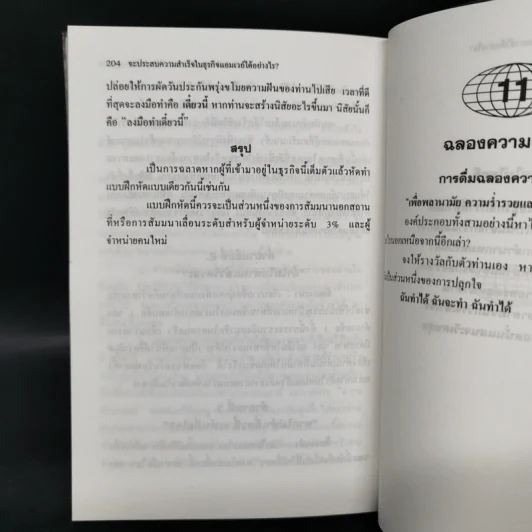 204 จะประสบความสำเร็จในธุรกิจแอมเวย์ได้อย่างไร?
ปล่อยให้การผัดวันประกันพรุ่งขโมยความฝันของท่านไปเสีย เวลาที่ดี
ที่สุดจะลงมือทำคือ เดี๋ยวนี้ หากท่านจะสร้างนิสัยอะไรขึ้นมา นิสัยนั้นก็
คือ "ลงมือทำเดี๋ยวนี้"
สรุป
เป็นการฉลาดหากผู้ที่เข้ามาอยู่ในธุรกิจนี้เต็มตัวแล้วหัดทำ
แบบฝึกหัดแบบเดียวกันนี้เช่นกัน
แบบฝึกหัดนี้ควรจะเป็นส่วนหนึ่งของการสัมมนานอกสถาน
ที่หรือการสัมมนาเลื่อนระดับสำหรับผู้จำหน่ายระดับ 3% และผู้
จำหน่ายคนใหม่
11
ฉลองความ
การดื่มฉลองควา
"เพื่อพลานามัย ความร่ำรวยแล
องค์ประกอบทั้งสามอย่างนี้หาไ
นอกเหนือจากนี้อีกเล่า?
จงให้รางวัลกับตัวท่านเอง หา
เป็นส่วนหนึ่งของการปลุกใจ
ฉันทำได้ ฉันจะทำ ฉันทำได้